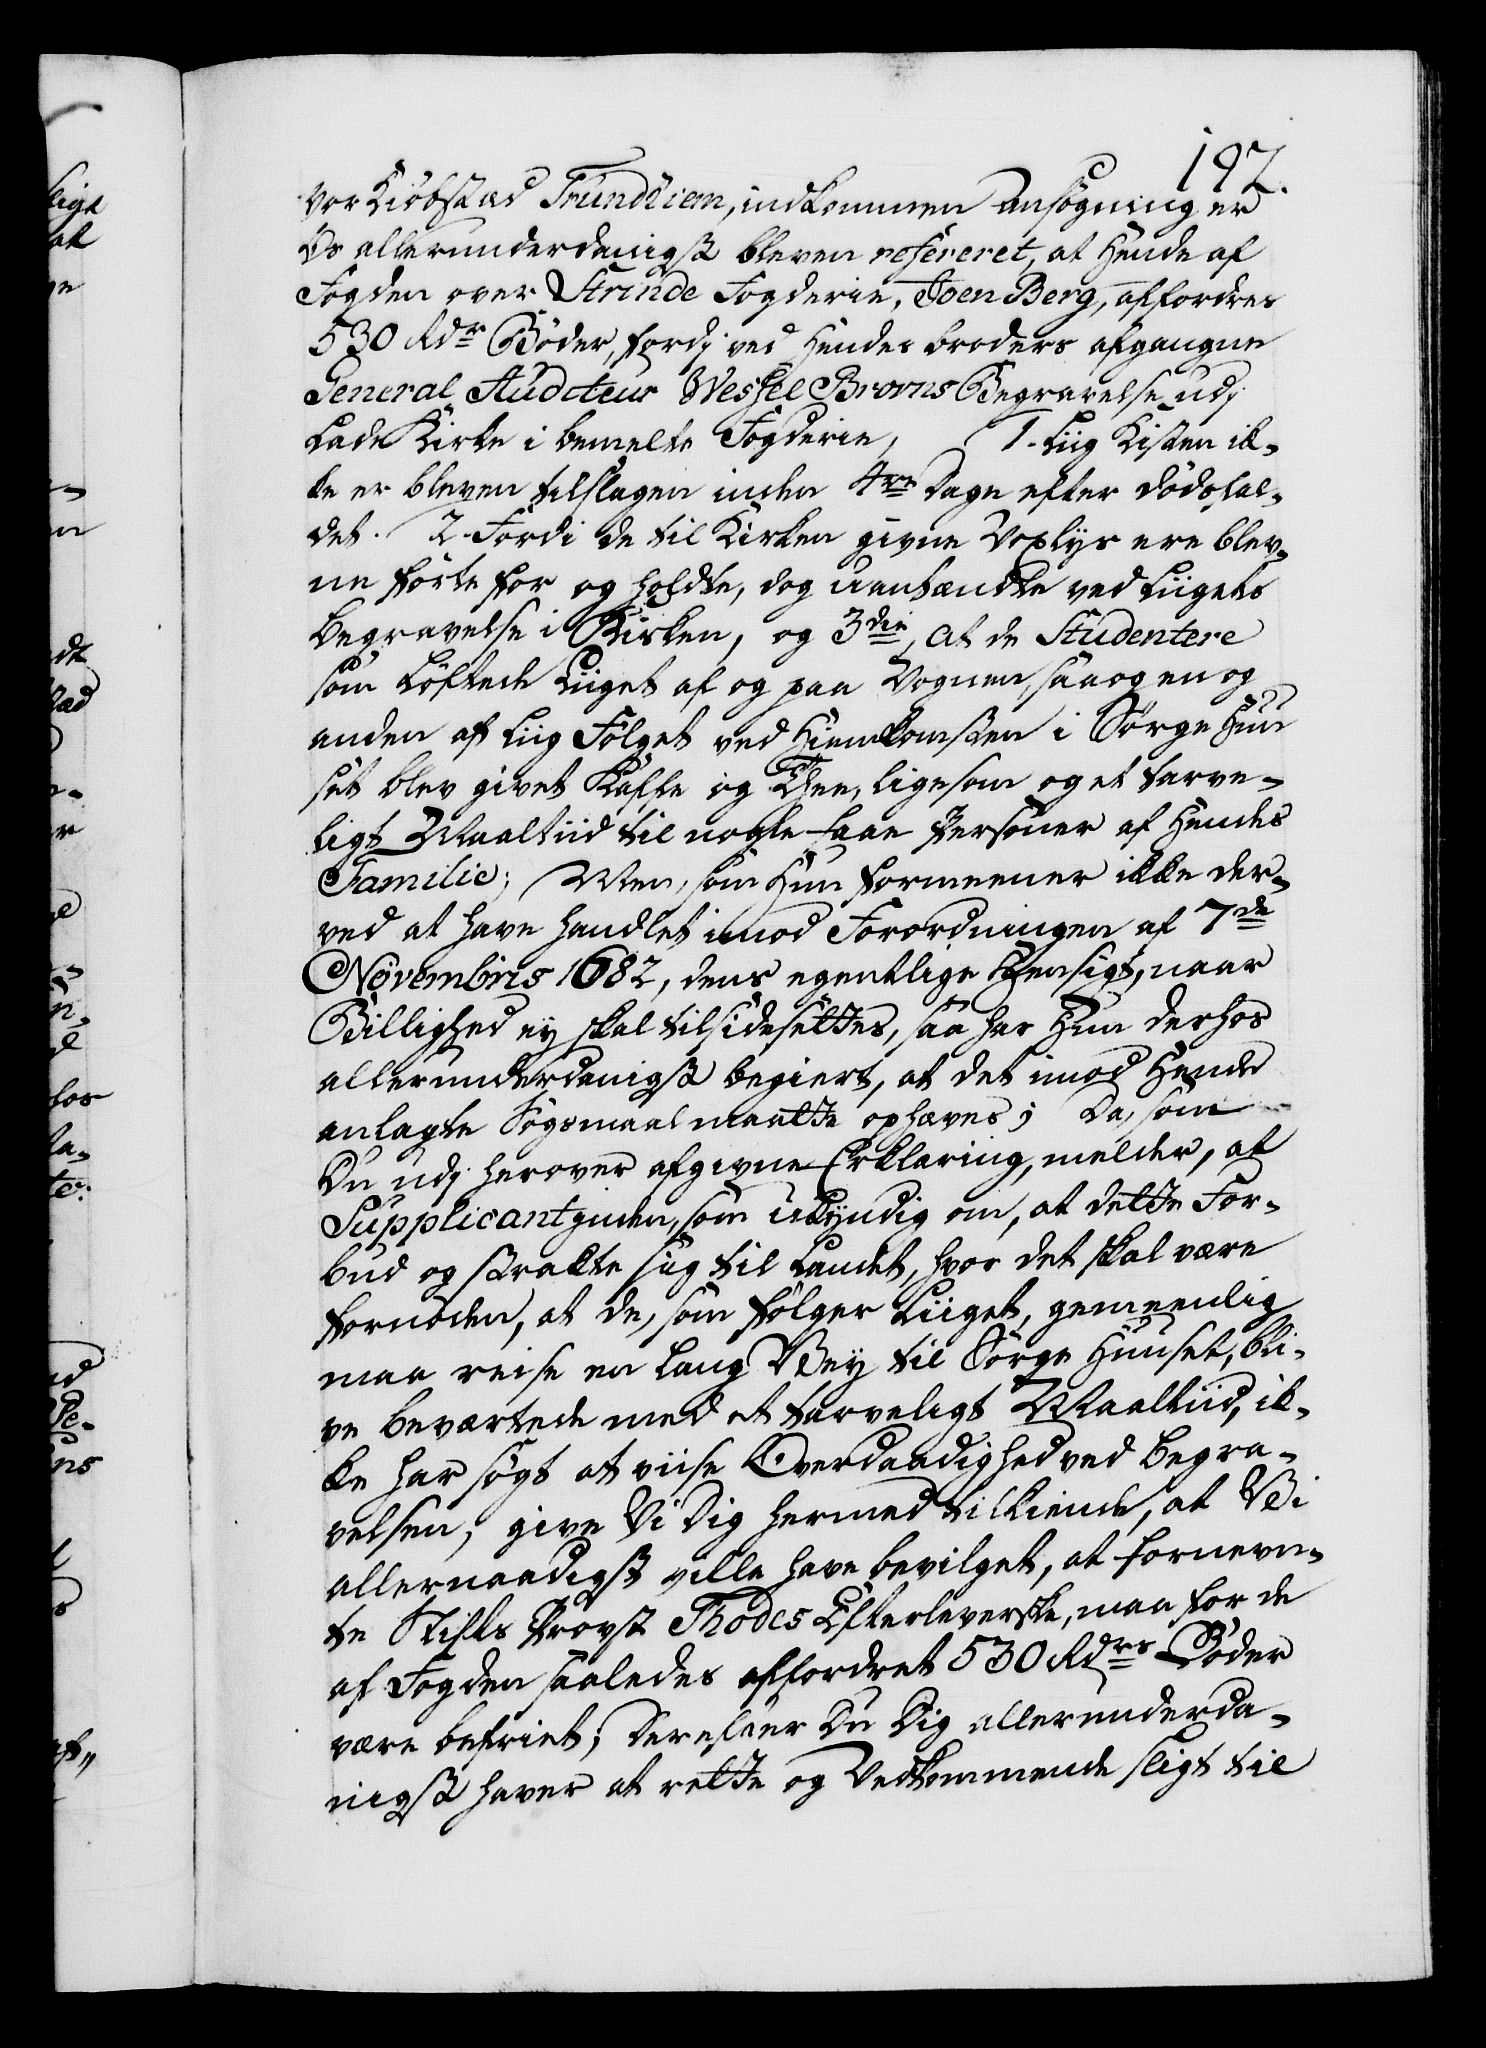 192.
vor Kiöbstæd Trundhiem, indkommen Ansøgning er
Os allerunderdanigst bleven refereret, at Hende af
Fogden over Strinde Fogderie, Joen Berg, affordres
530 Rdr Bøder, fordj ved Hendes broders afgangne
General Auditeur Wessel Browns Begravelse udj
Lade Kirke i bemelte Fogderie, 1. Liig Kisten ik-
ke er bleven tilslagen inden 4re Dage efter dødsfal-
det. 2. Fordi de til Kirken givne Voxlys ere blev-
ne førte for og holdte, dog uantændte ved Liigets
begravelse i Kirken, og 3die, at de Studentere
som løftede Liiget af og paa Vognen, saa og en og
anden af Liig Følget ved Hiemkomsten i Sørge Huu
set blev givet Kaffe og Thee, ligesom og et tarve-
ligt Maaltiid til nogle faae Persöner af Hendes
Familie; Men, som Hun formeener ikke der-
ved at have handlet imod Forordningen af 7de
Novembris 1682, dens egentlige Hensigt, naar
Billighed ey skal tilsidesættes, saa har Hun derhos
allerunderdanigst begiert, at det imod Hende
anlagte Søgsmaal maatte ophæves; Da, som
Du udj herover afgivne Erklæring, melder, at
Supplicantinden, som ukyndig om, at dette For-
bud og strakte siig til Landet, hvor det skal være
fornöden, at de, som følger Liiget, gemeenlig
maa reise en lang Vey til Sørge Huuset, bli-
ve beværtede med et tarveligt Maaltiid, ik-
ke har søgt at viise Overdaadighed ved begra-
velsen, give Vi Dig hermed tilkiende, at Vi
allernaadigst ville have bevilget, at fornevn-
te Stifts Provst Thodes Efterleverske, maa for de
af Fogden saaledes affordret 530 Rdrs Bøder
være befriet; Derefter Du Dig allerunderda-
nigst haver at rette og Vedkommende sligt til